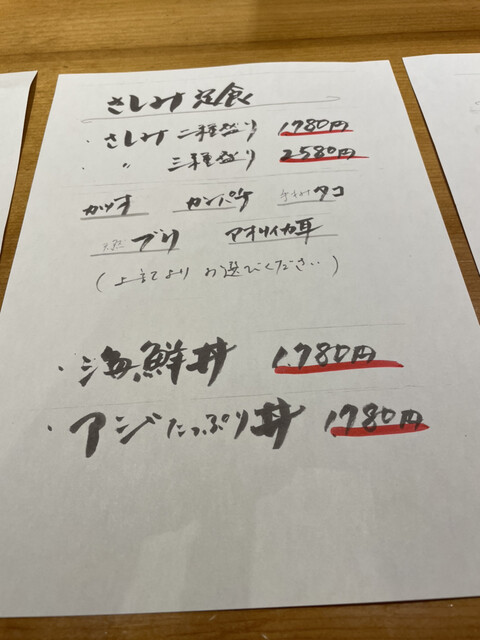 さしみ定食
・さしみ二種盛り 1780円
・〃 三種盛り 2580円
カツオ カンパチ タコ
天然 ブリ アオリイカ耳
(上記よりお選びください)
・海鮮丼 1.780円
・アジたっぷり丼 1780円